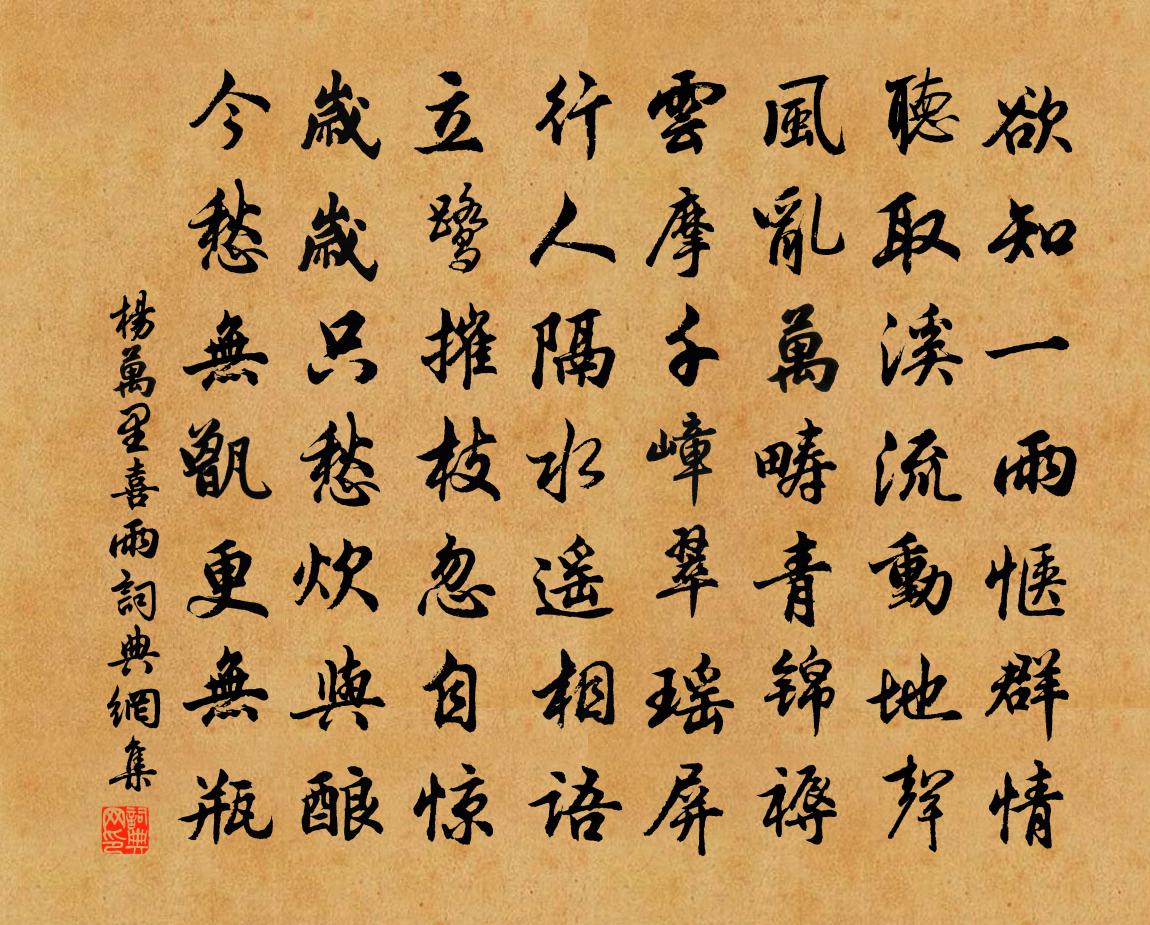 欲知一雨惬群情
聽取溪流動地聲
風亂萬疇青锦褥
雲摩千嶂翠瑶屏
行人隔水遥相語
立鹭摧枝忽自惊
歲歲只愁炊與酿
今愁無甑更無瓶
楊萬里喜雨詞典網集
詞典網印